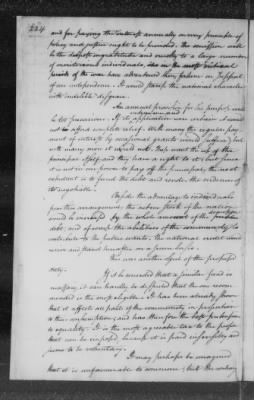 224
and for paying the interest annually on every principle of
policy and justice ought to be provided. The omission will
be the deepest ingratitude and cruelty to a large number
of meritorious individuals, who in the most critical
periods of the war have adventured their fortunes in support
of our independence. It would stamp the national character
with indelible disgrace.
An annual provision for the purpose will
be too precarious. If its continuance and application were certain it would
not afford complete relief. With many the regular pay-
ment of interest by occasional grants would suffice; but
with many more it would not. These want the use of the
principal itself and they have a right to it; but since
it is not in our power to pay off the principal, the next
expedient is to fund the debt and render the evidences of
it negotiable.
Besides the advantage to individuals
from this arrangement the active stock of the nation
would be increased by the whole amount of the domestic
debt; and of course the abilities of the community to con
tribute to the public wants; the national credit would
revive and stand hereafter on a secure basis.
This was another object of the proposed
duty.
If it be conceded that a similar fund is
necessary, it can hardly be disputed that the one recom
mended is the most eligible. It has been already shown
that it affects all parts of the community in proportion
to their consumption; and has therefore the best pretensions
to equality. It is the most agreeable tax to the people
that can be imposed, because it is paid insensibly and
seems to be voluntary.
It may perhaps be imagined
that it is unfavourable to commerce; but the contrary